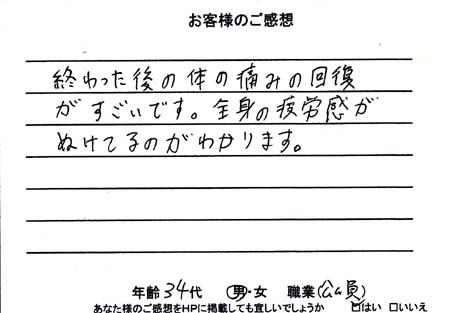 お客様のご感想
終わった後の体の痛みの回復
がすごいです。全身の疲労感が
ぬけてるのがわかります。
年齢 34代 男・女 職業(公ム員)
あなた様のご感想をHPに掲載しても宜しいでしょうか ☑はい □いいえ